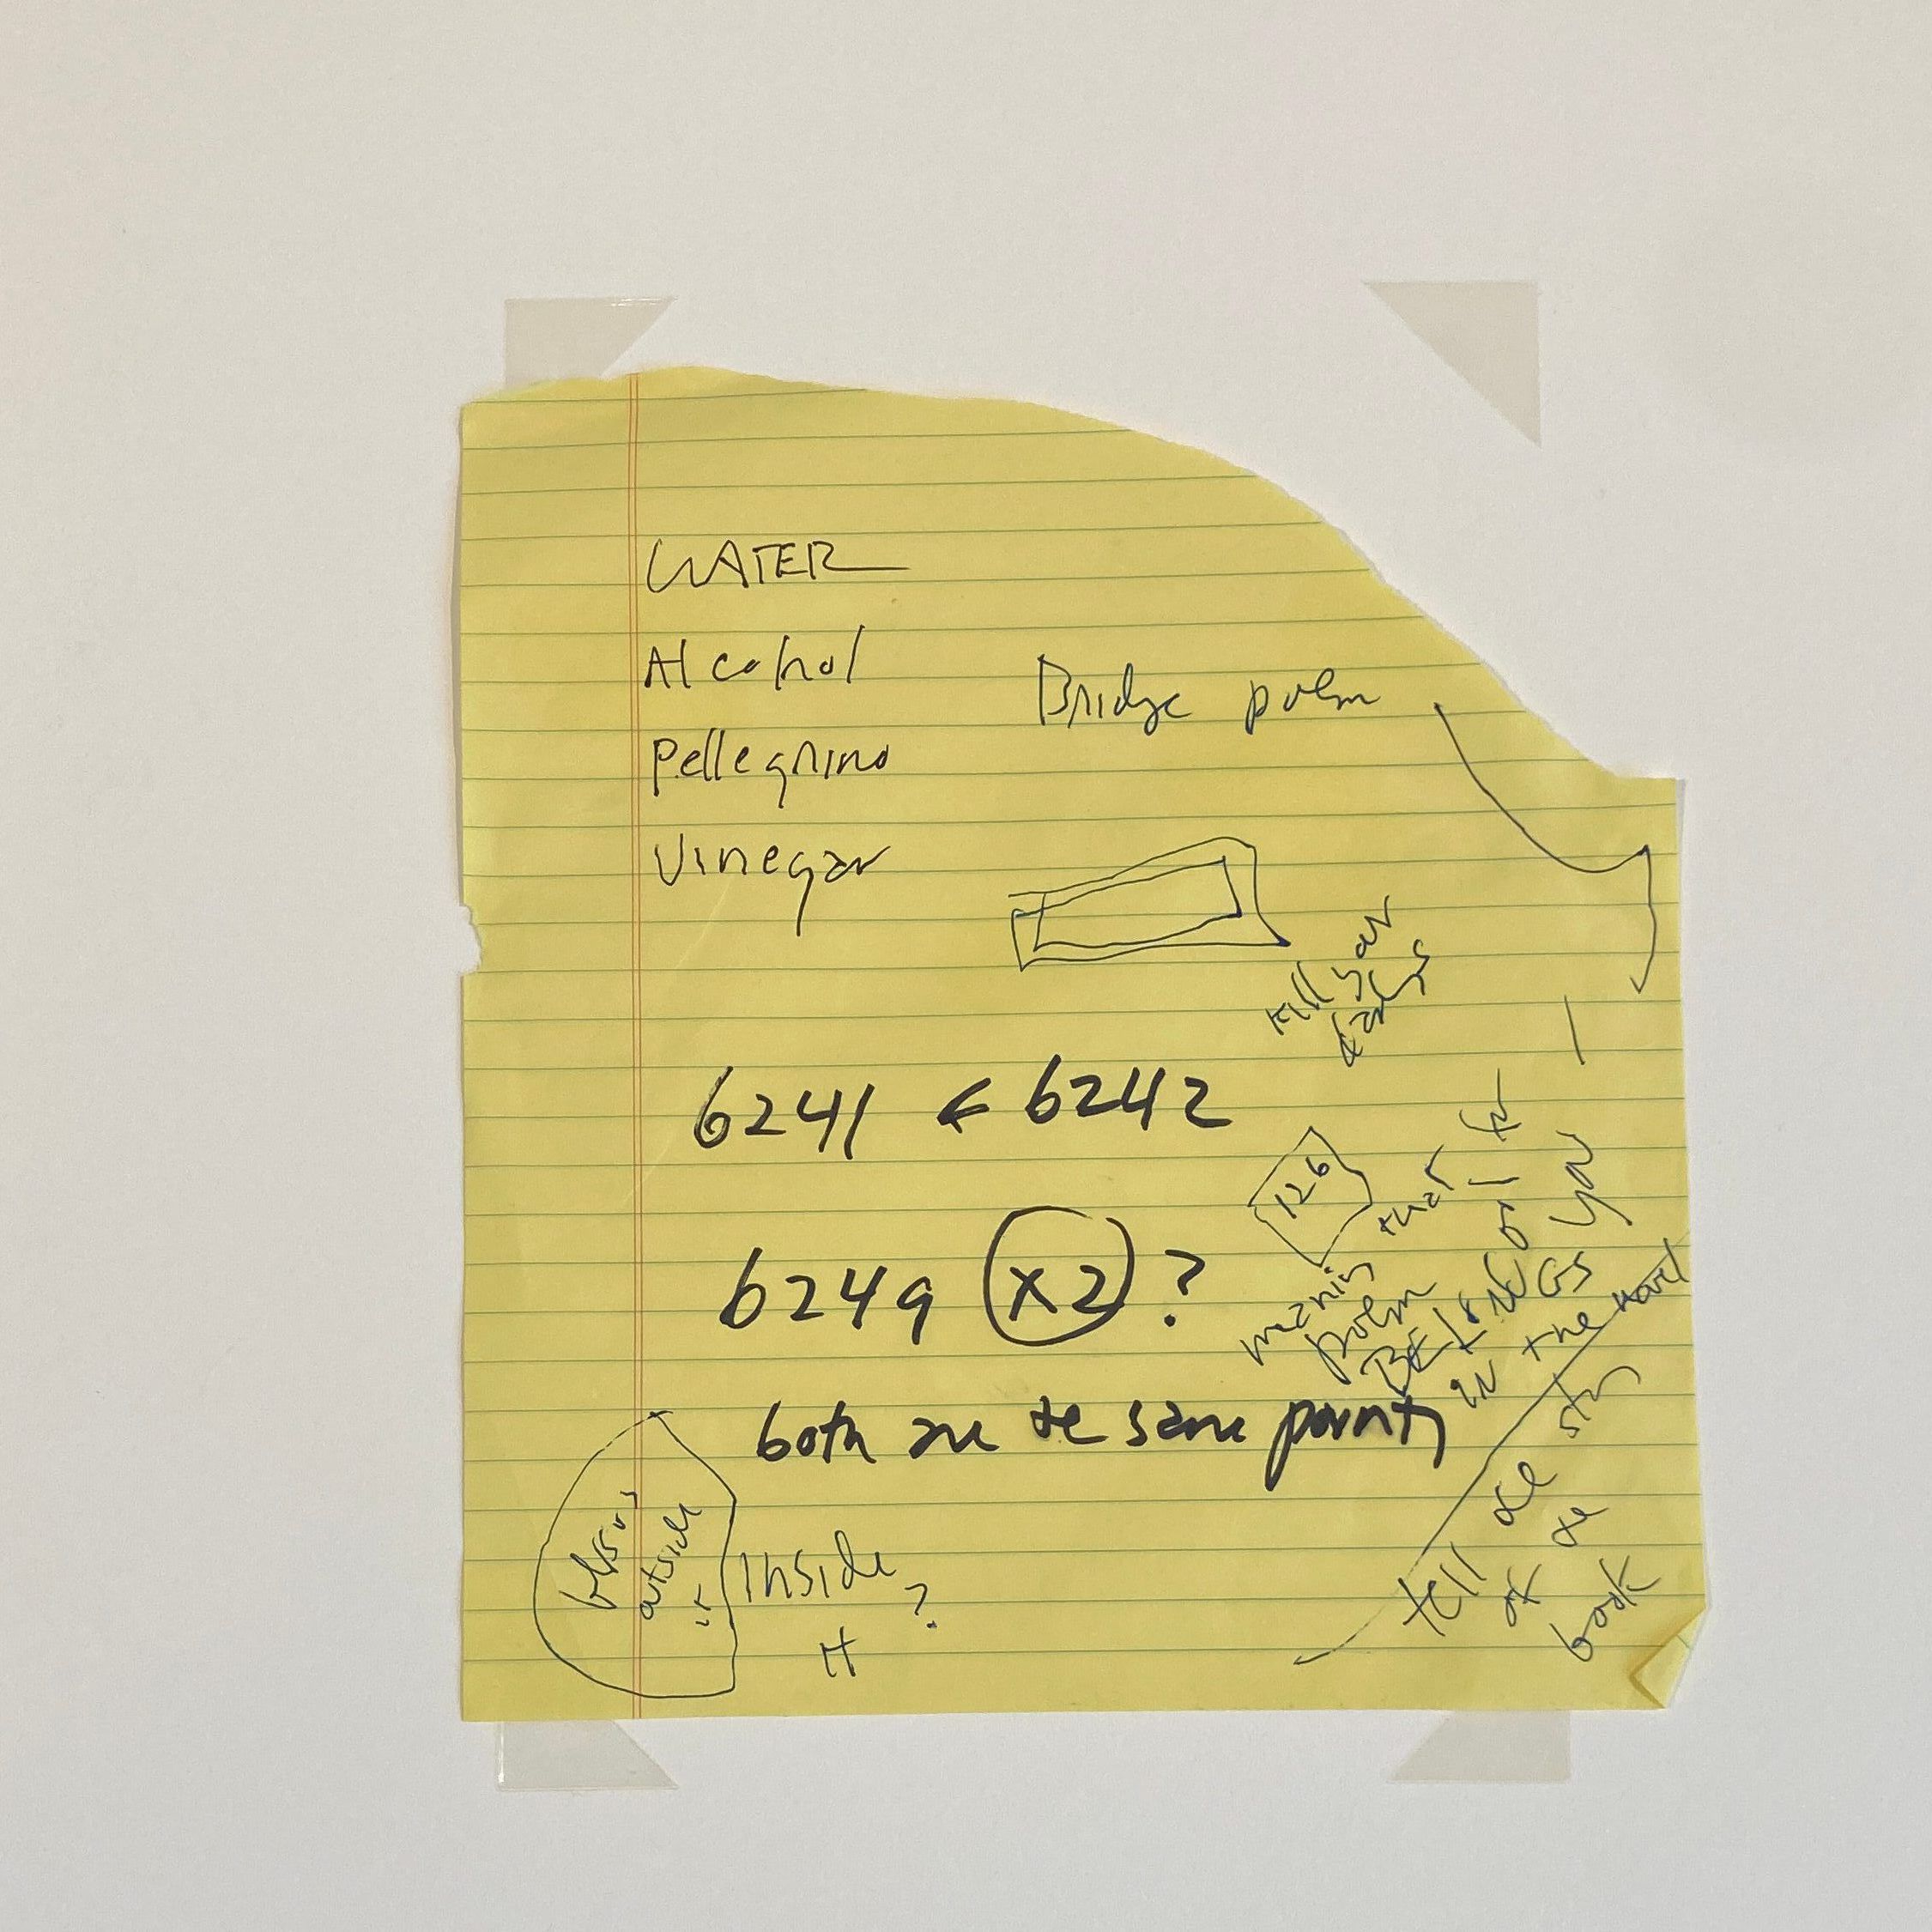 WATER
Alcohol
Pellegrino
Vinegar
Bridge poem
Kill your
6241 & 6242
126
6249 x2 ?
meaning that
poem
BELONGS
in the novel
only for
you
both are the same
outside
it
Inside
it
?
tell the story
of the
book